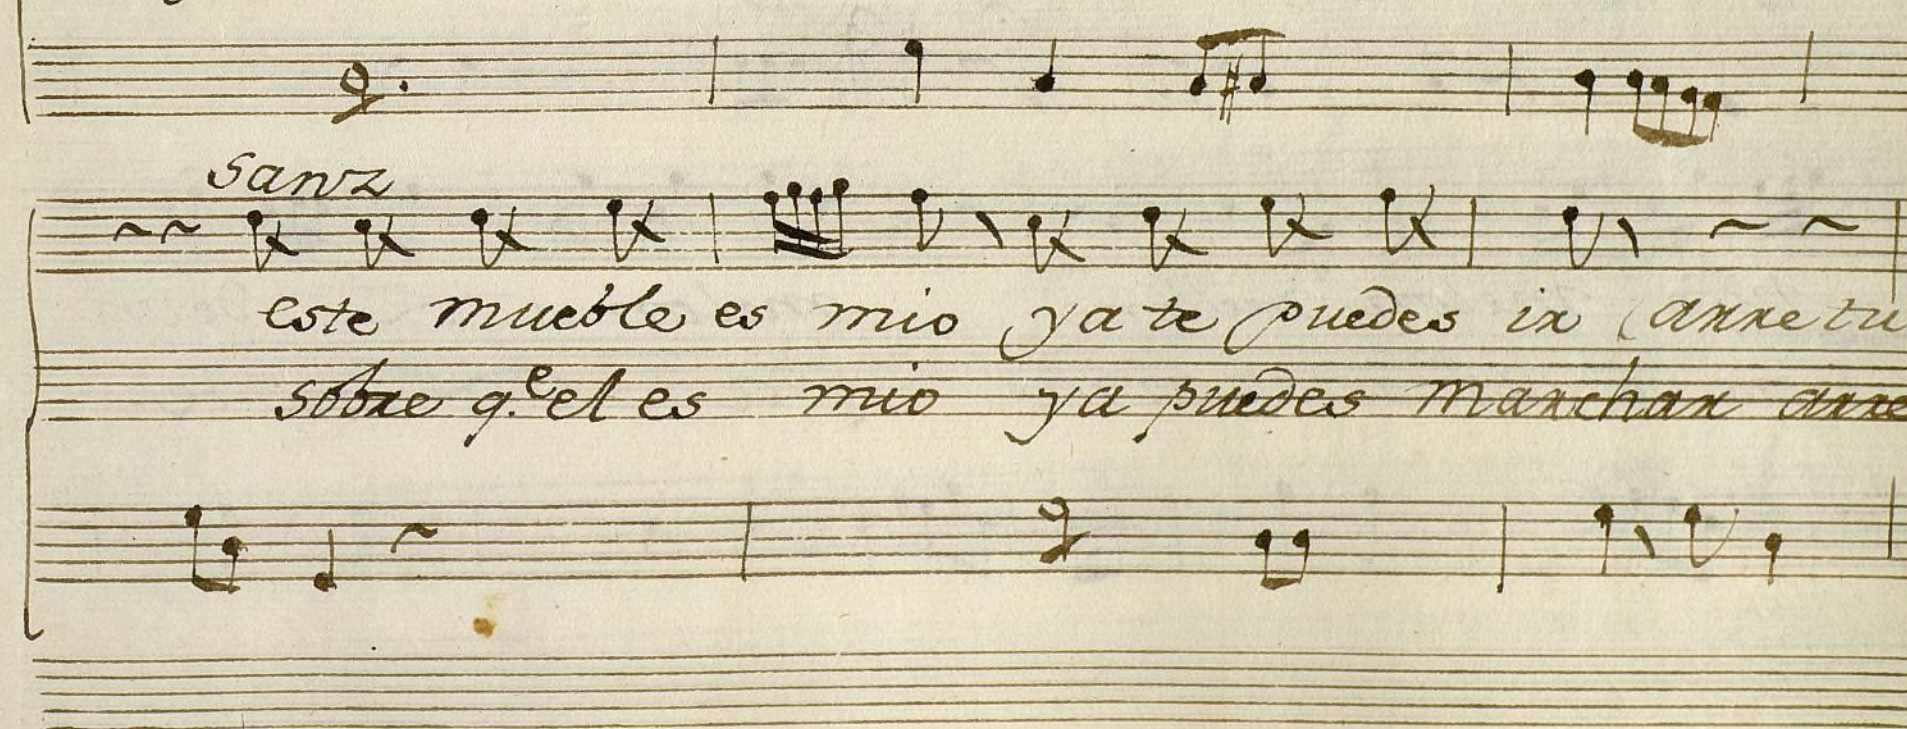 sanz
este mueble es mio ya te puedes ir (arre tu
sobre q.e el es mio ya puedes marchar arre